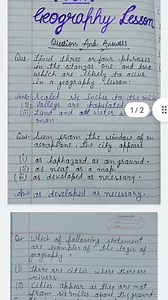 Geography Lesson
Question And Answers
Que Find three or four phrases
in the stanzas one and two
which are likely to occur
in a geography lesson.
Ans: Scaled six inches to the mile
(ii) Valleys are populated
(iii) Land and all water
man.
1/2
Que Seen from the window of an
aeroplane the city appears
(i) as haphazard as on ground.
(ii) as neat as a map.
(iii) as developed as necessary.
Ans: as developed as necessary.
Que Which of following statement
are examples of the logic of
geography.
(i) There are cities where there are
rivers.
(ii) Cities appear as they are not
from six miles above the ground